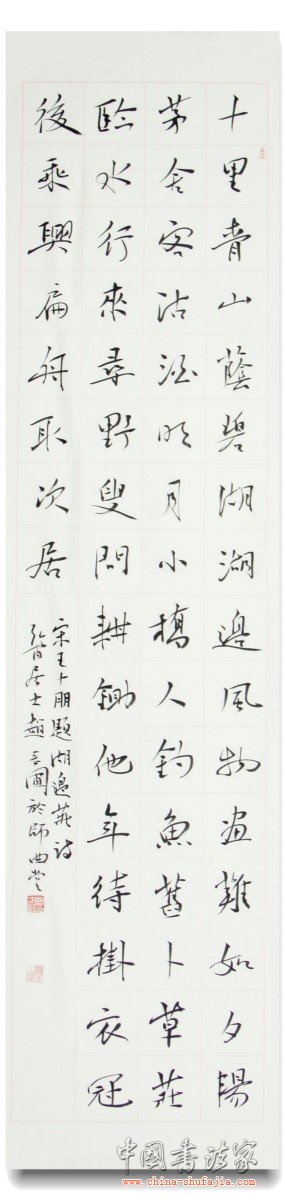 十里青山蔭碧湖湖邊風物畫難如夕陽
茅舍客沽酒明月小橋人釣魚舊卜草莊
臨水行來尋野叟問耕鋤他年待掛衣冠
後乘興扁舟取次居
宋王十朋題湖邊莊詩
居士趙言圃於師曲堂
中國書法家
www.china-shufajia.com